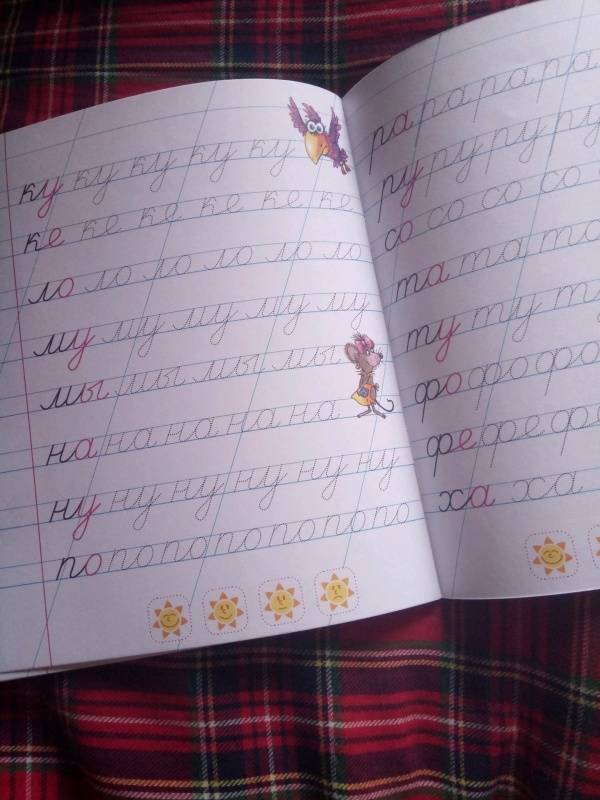 ку ку ку ку ку
ке ке ке ке ке ке
ло ло ло ло ло ло
му му му му му
мы мы мы мы мы
на на на на на
ну ну ну ну ну ну
по по по по по по по
ра ра ра ра
ру ру ру ру
со со со со
та та та та
ту ту ту
фо фо фо
фе фе фе
ха ха